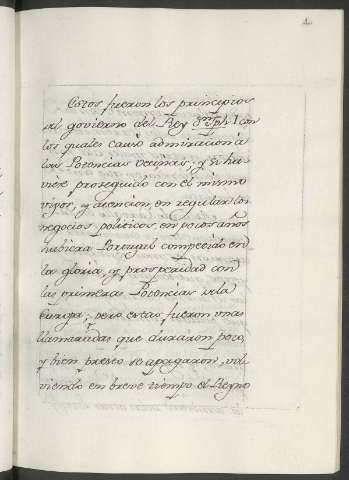 Estos fueron los principios
del govierno del Rey Dn Jph. I con
los quales causó admiracion à
las Potencias vecinas; y si hu-
viese proseguido con el mismo
vigor, y atencion, en regular los
negocios politicos, en pocos años
hubiera Portugal competido en
la gloria, y prosperidad con
las primeras Potencias de la
Europa; pero estas fueron unas
llamaradas que duraron poco,
y bien presto se apagaron, vol-
viendo en breve tiempo el Reyno